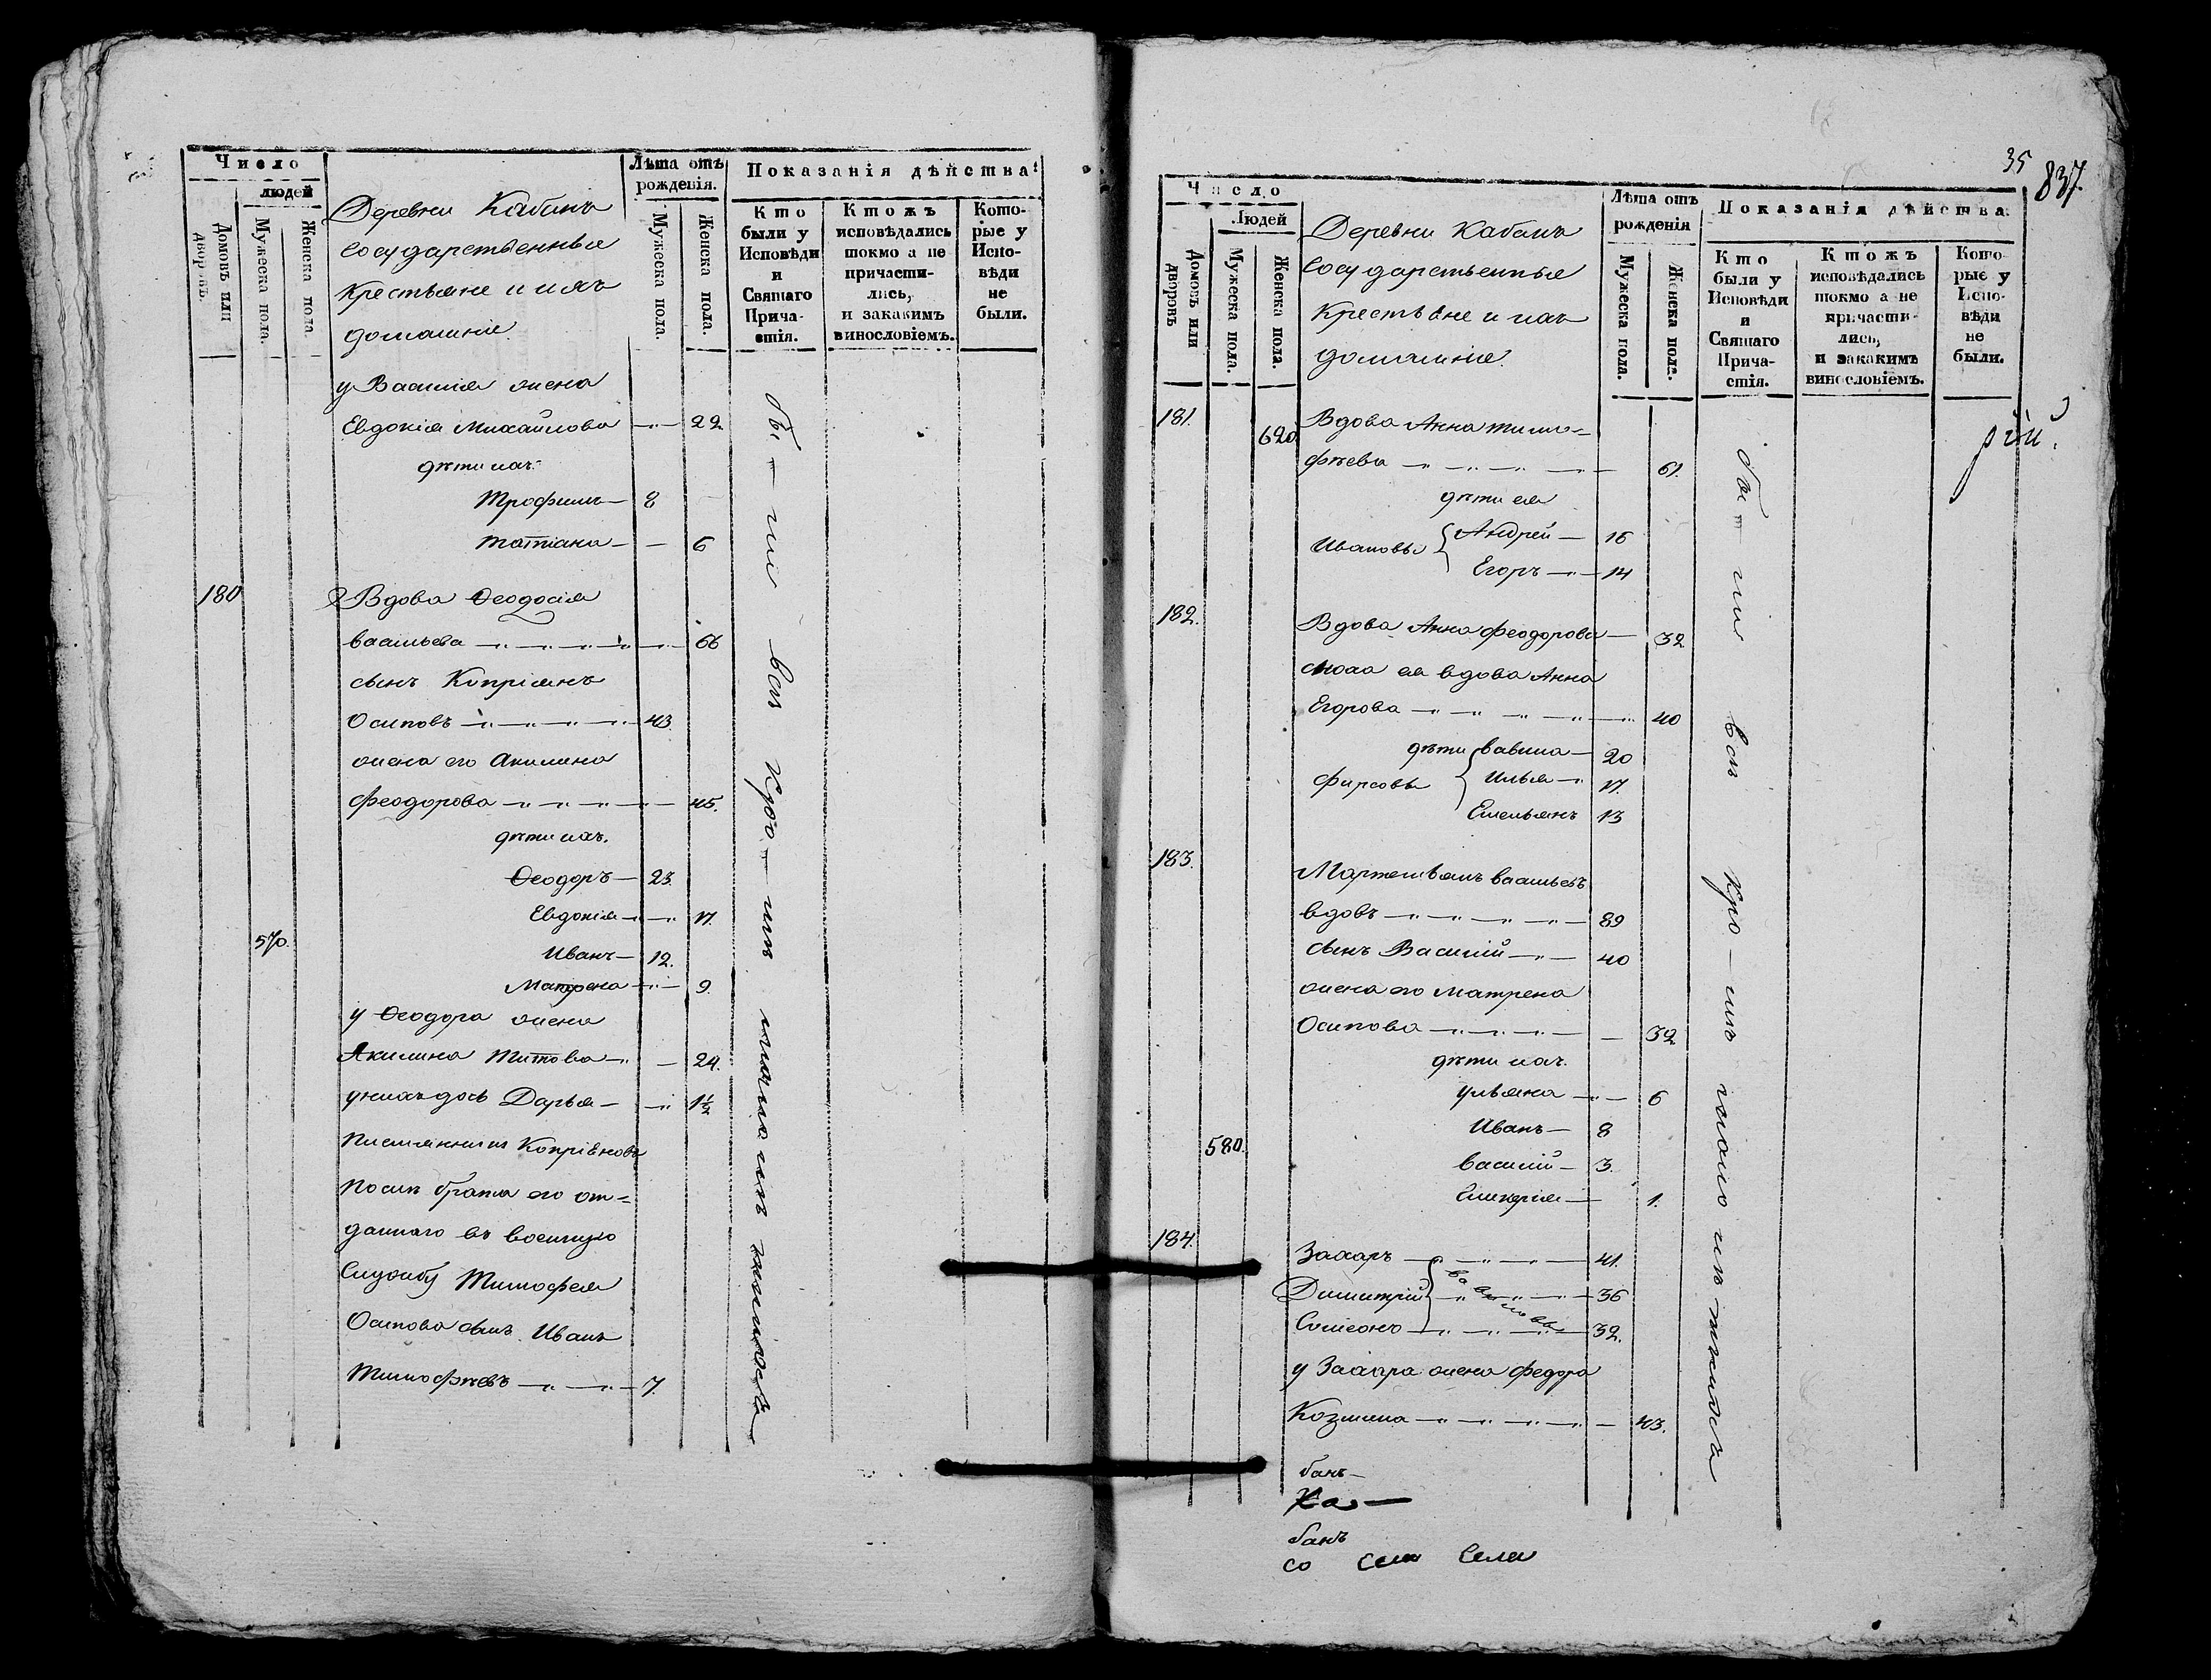 Число
людей
Домовъ или дворовъ.
Мужеска пола.
Женска пола.
Деревни Кабанъ
Государственныя
Крестьяне и ихъ
домашніе.
Лѣта отъ
рожденія.
Мужеска пола.
Женска пола.
Показанія дѣйства
Кто
были у
Исповѣди
и
Святаго
Прича-
стія.
Ктожъ
исповѣдались
токмо а не
причасти-
лись,
и закакимъ
винословіемъ.
Кото-
рые у
Испо-
вѣди
не
были.
у Василія жена
Евдокія Михайлова 22
дѣти ихъ
Трофимъ 8
Татіана 6
180 Вдова Ѳеодосія
васильева 66
сынъ Кипріянъ
Осиповъ 43
жена его Акилина
Феодорова 45.
дѣти ихъ.
Ѳеодоръ 23.
Евдокія 17.
570.
Иванъ 12.
Матрена 9.
у Ѳеодора жена
Акилина Титова 24.
у нихъ дочь Дарья 1½
племянникъ
брата его от=
даннаго въ военную
Службу Тимофея
Осипова сынъ Иванъ
Тимофѣевъ 7.
бы-ли всѣ кро-мѣ
35
837.
Число
Людей
Домовъ или дворовъ
Мужеска пола.
Женска пола.
Деревни Кабанъ
Государственныя
Крестьяне и ихъ
домашніе.
Лѣта отъ
рожденія
Мужеска пола.
Женска пола.
Показанія дѣйства
Кто
были у
Исповѣди
и
Святаго
Прича-
стія.
Ктожъ
исповѣдались
токмо а не
причасти-
лись,
и закакимъ
винословіемъ.
Кото-
рые у
Испо-
вѣди
не
были.
рій.
181. 620 Вдова Анна тимо=
фѣева 61.
дѣти ея
Ивановы Андрей 16
Егоръ 14
182. Вдова Анна Феодорова 32
сноха ея вдова Анна
Егорова 40
дѣти вавила 20
Фирсовы Илья 17.
Емельянъ 13
183. Мартемьянъ васильевъ
вдовъ 89
сынъ Василій 40
жена его Матрена
Осипова 32
дѣти ихъ.
ульяна 6
Иванъ 8
580.
василій 3.
Гликерія 1.
184. Захаръ 41.
Димитрій 36
Симеонъ 32.
у Захара жена Федора
Козмина 43.
бы-ли всѣ кро-мѣ
банъ
Ка
банъ
со села